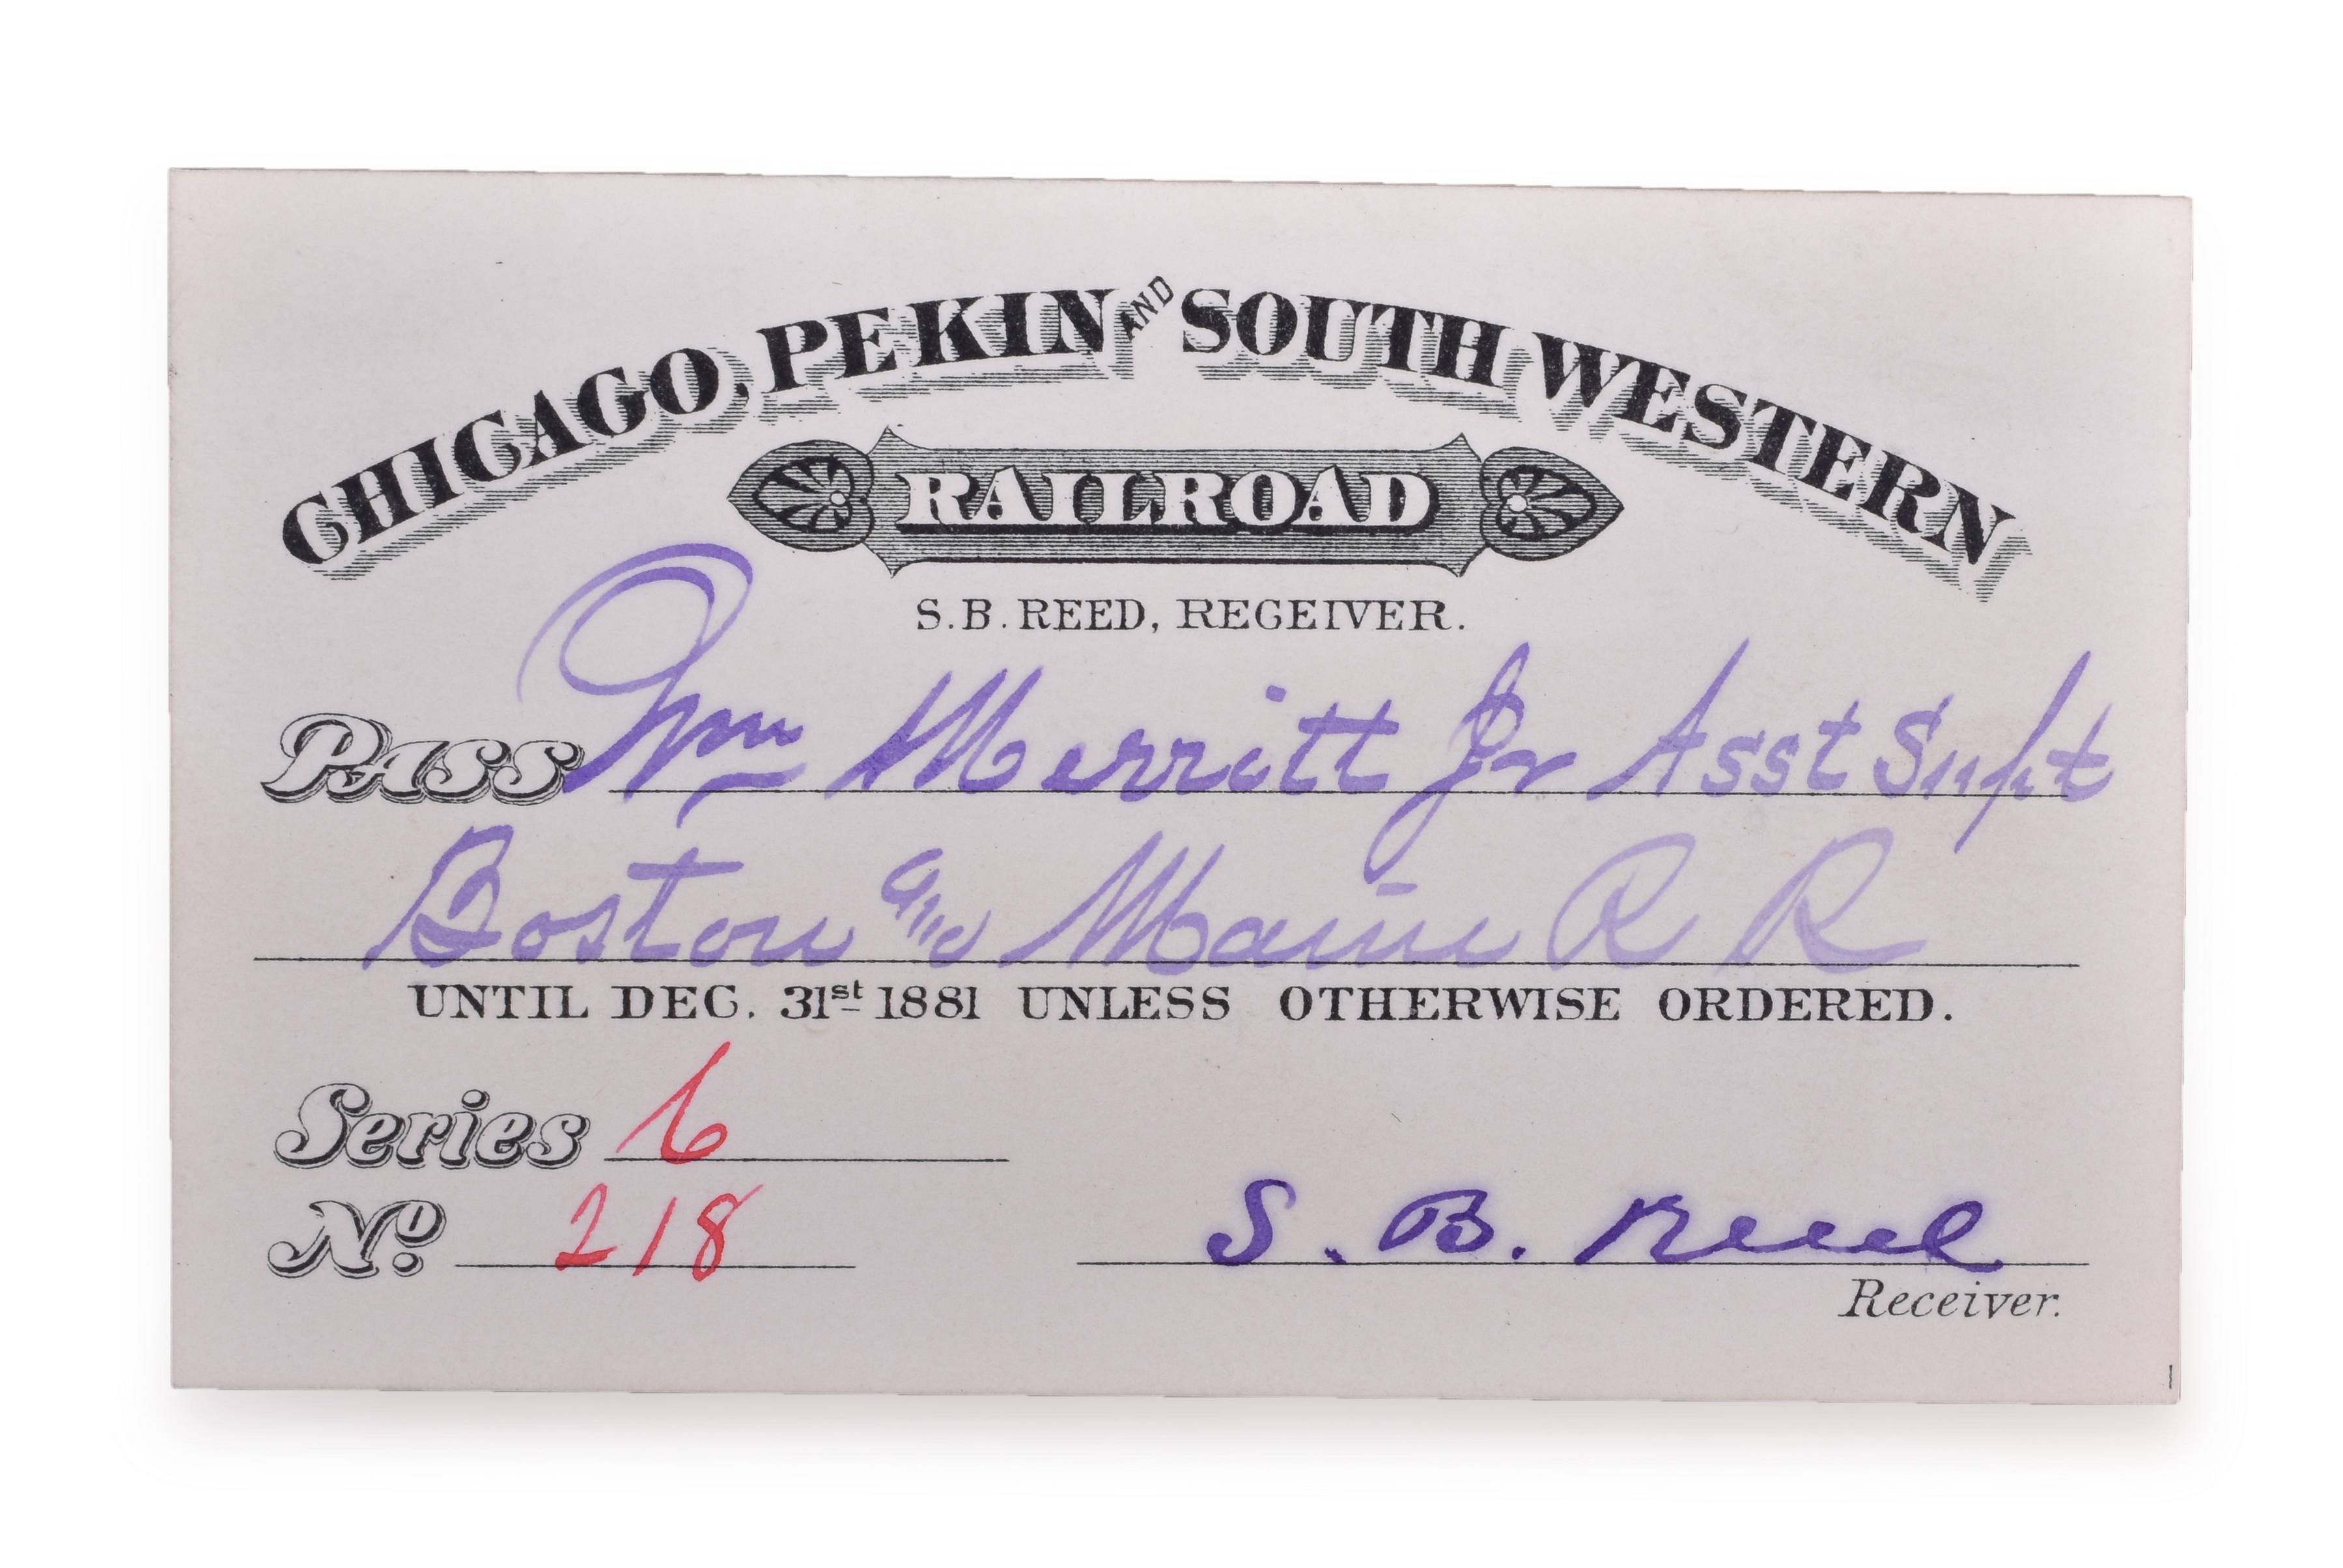 CHICAGO, PEKIN AND SOUTH WESTERN
RAILROAD
S.B. REED, RECEIVER.
PASS Wm Merritt Jr Asst Supt
Boston and Maine R R
UNTIL DEC. 31st 1881 UNLESS OTHERWISE ORDERED.
Series 6
No. 218
S. B. Reed
Receiver.